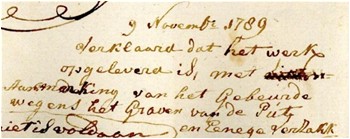 9 Novembr 1789
Verklaard dat het werk
opgeleverd is, met
Aanmerking van het Gebeurde
wegens het Graven van de Put
en Eenege